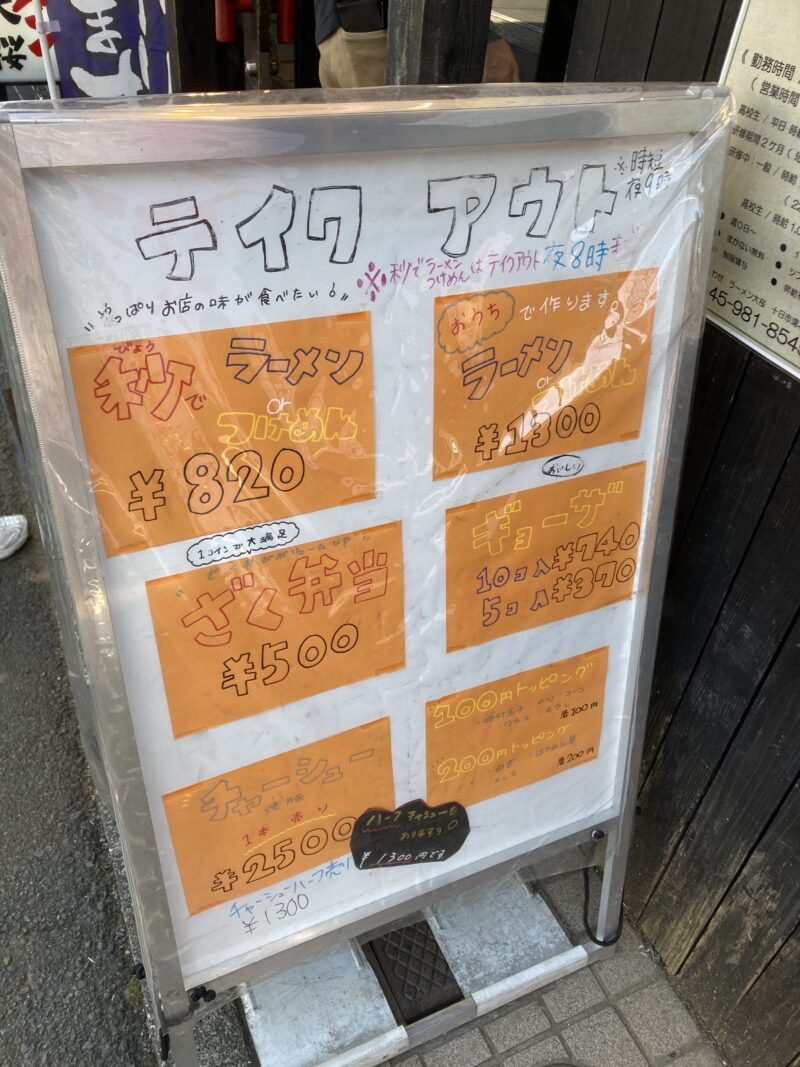 テイク アウト
※時短
夜9時
※秒でラーメン
つけめんはテイクアウト夜8時まで
"やっぱりお店の味が食べたい!"
びょう
秒で ラーメン
or
つけめん
¥820
おうちで作ります。
ラーメン
or
つけめん
¥1300
1コインで大満足
ざく弁当
¥500
おいしい
ギョーザ
10コ入¥740
5コ入¥370
チャーシュー
1本売り
¥2500
チャーシューハーフ売り
¥1300
ハーフチャーシューも
あります
¥1300円です
100円トッピング
味付玉子・のり・コーン
ワカメ・もやし
各100円
200円トッピング
ねぎ・ほうれん草
各200円
《勤務時間
(営業時間
高校生/平日
研修期間2ケ月
研修中:一般/時給
高校生/時給1,0
●週0日~
●まかない無料
制服貸与
ラーメン大桜 十日市場
45-981-854